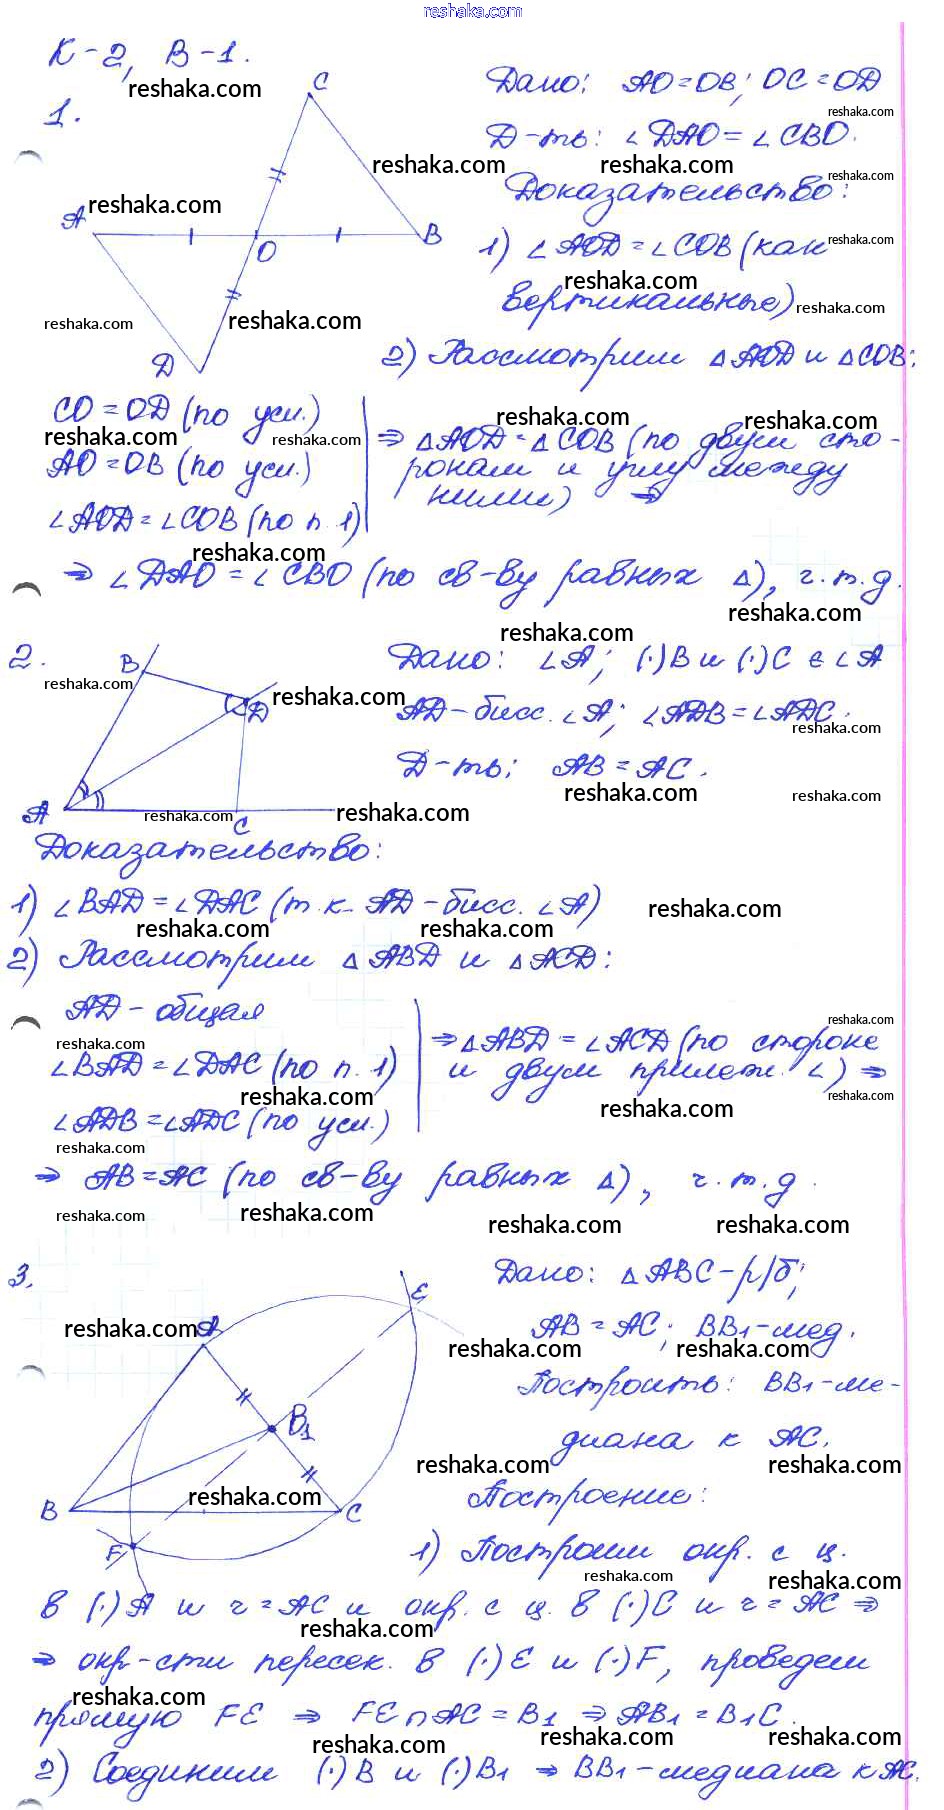 reshaka.com
К-2, В-1.
1.
Дано: AO=OB; OC=OD
Д-ть: ∠DAO=∠CBO.
Доказательство:
1) ∠AOD=∠COB (как
вертикальные)
2) Рассмотрим △AOD и △COB:
C
A
O
B
D
CO=OD (по усл.)
AO=OB (по усл.)
∠AOD=∠COB (по п. 1)
⇒ △AOD=△COB (по двум сто-
ронам и углу между
ними) ⇒
⇒ ∠DAO=∠CBO (по св-ву равных △), ч.т.д.
2.
B
D
A
C
Дано: ∠A; (·)B и (·)C ∈ ∠A
AD-бисс. ∠A; ∠ADB=∠ADC.
Д-ть: AB=AC.
Доказательство:
1) ∠BAD=∠DAC (т.к. AD-бисс. ∠A)
2) Рассмотрим △ABD и △ACD:
AD-общая
∠BAD=∠DAC (по п. 1)
∠ADB=∠ADC (по усл.)
⇒ △ABD=∠ACD (по стороне
и двум прилеж. ∠) ⇒
⇒ AB=AC (по св-ву равных △), ч.т.д.
3.
A
E
B1
B
C
F
Дано: △ABC-р/б;
AB=AC; BB1-мед.
Построить: BB1-ме-
диана к AC.
Построение:
1) Построим окр. с ц.
в (·)A и r=AC и окр. с ц. в (·)C и r=AC ⇒
⇒ окр-сти пересек. в (·)E и (·)F, проведем
прямую FE ⇒ FE∩AC=B1 ⇒ AB1=B1C.
2) Соединим (·)B и (·)B1 ⇒ BB1-медиана к AC.